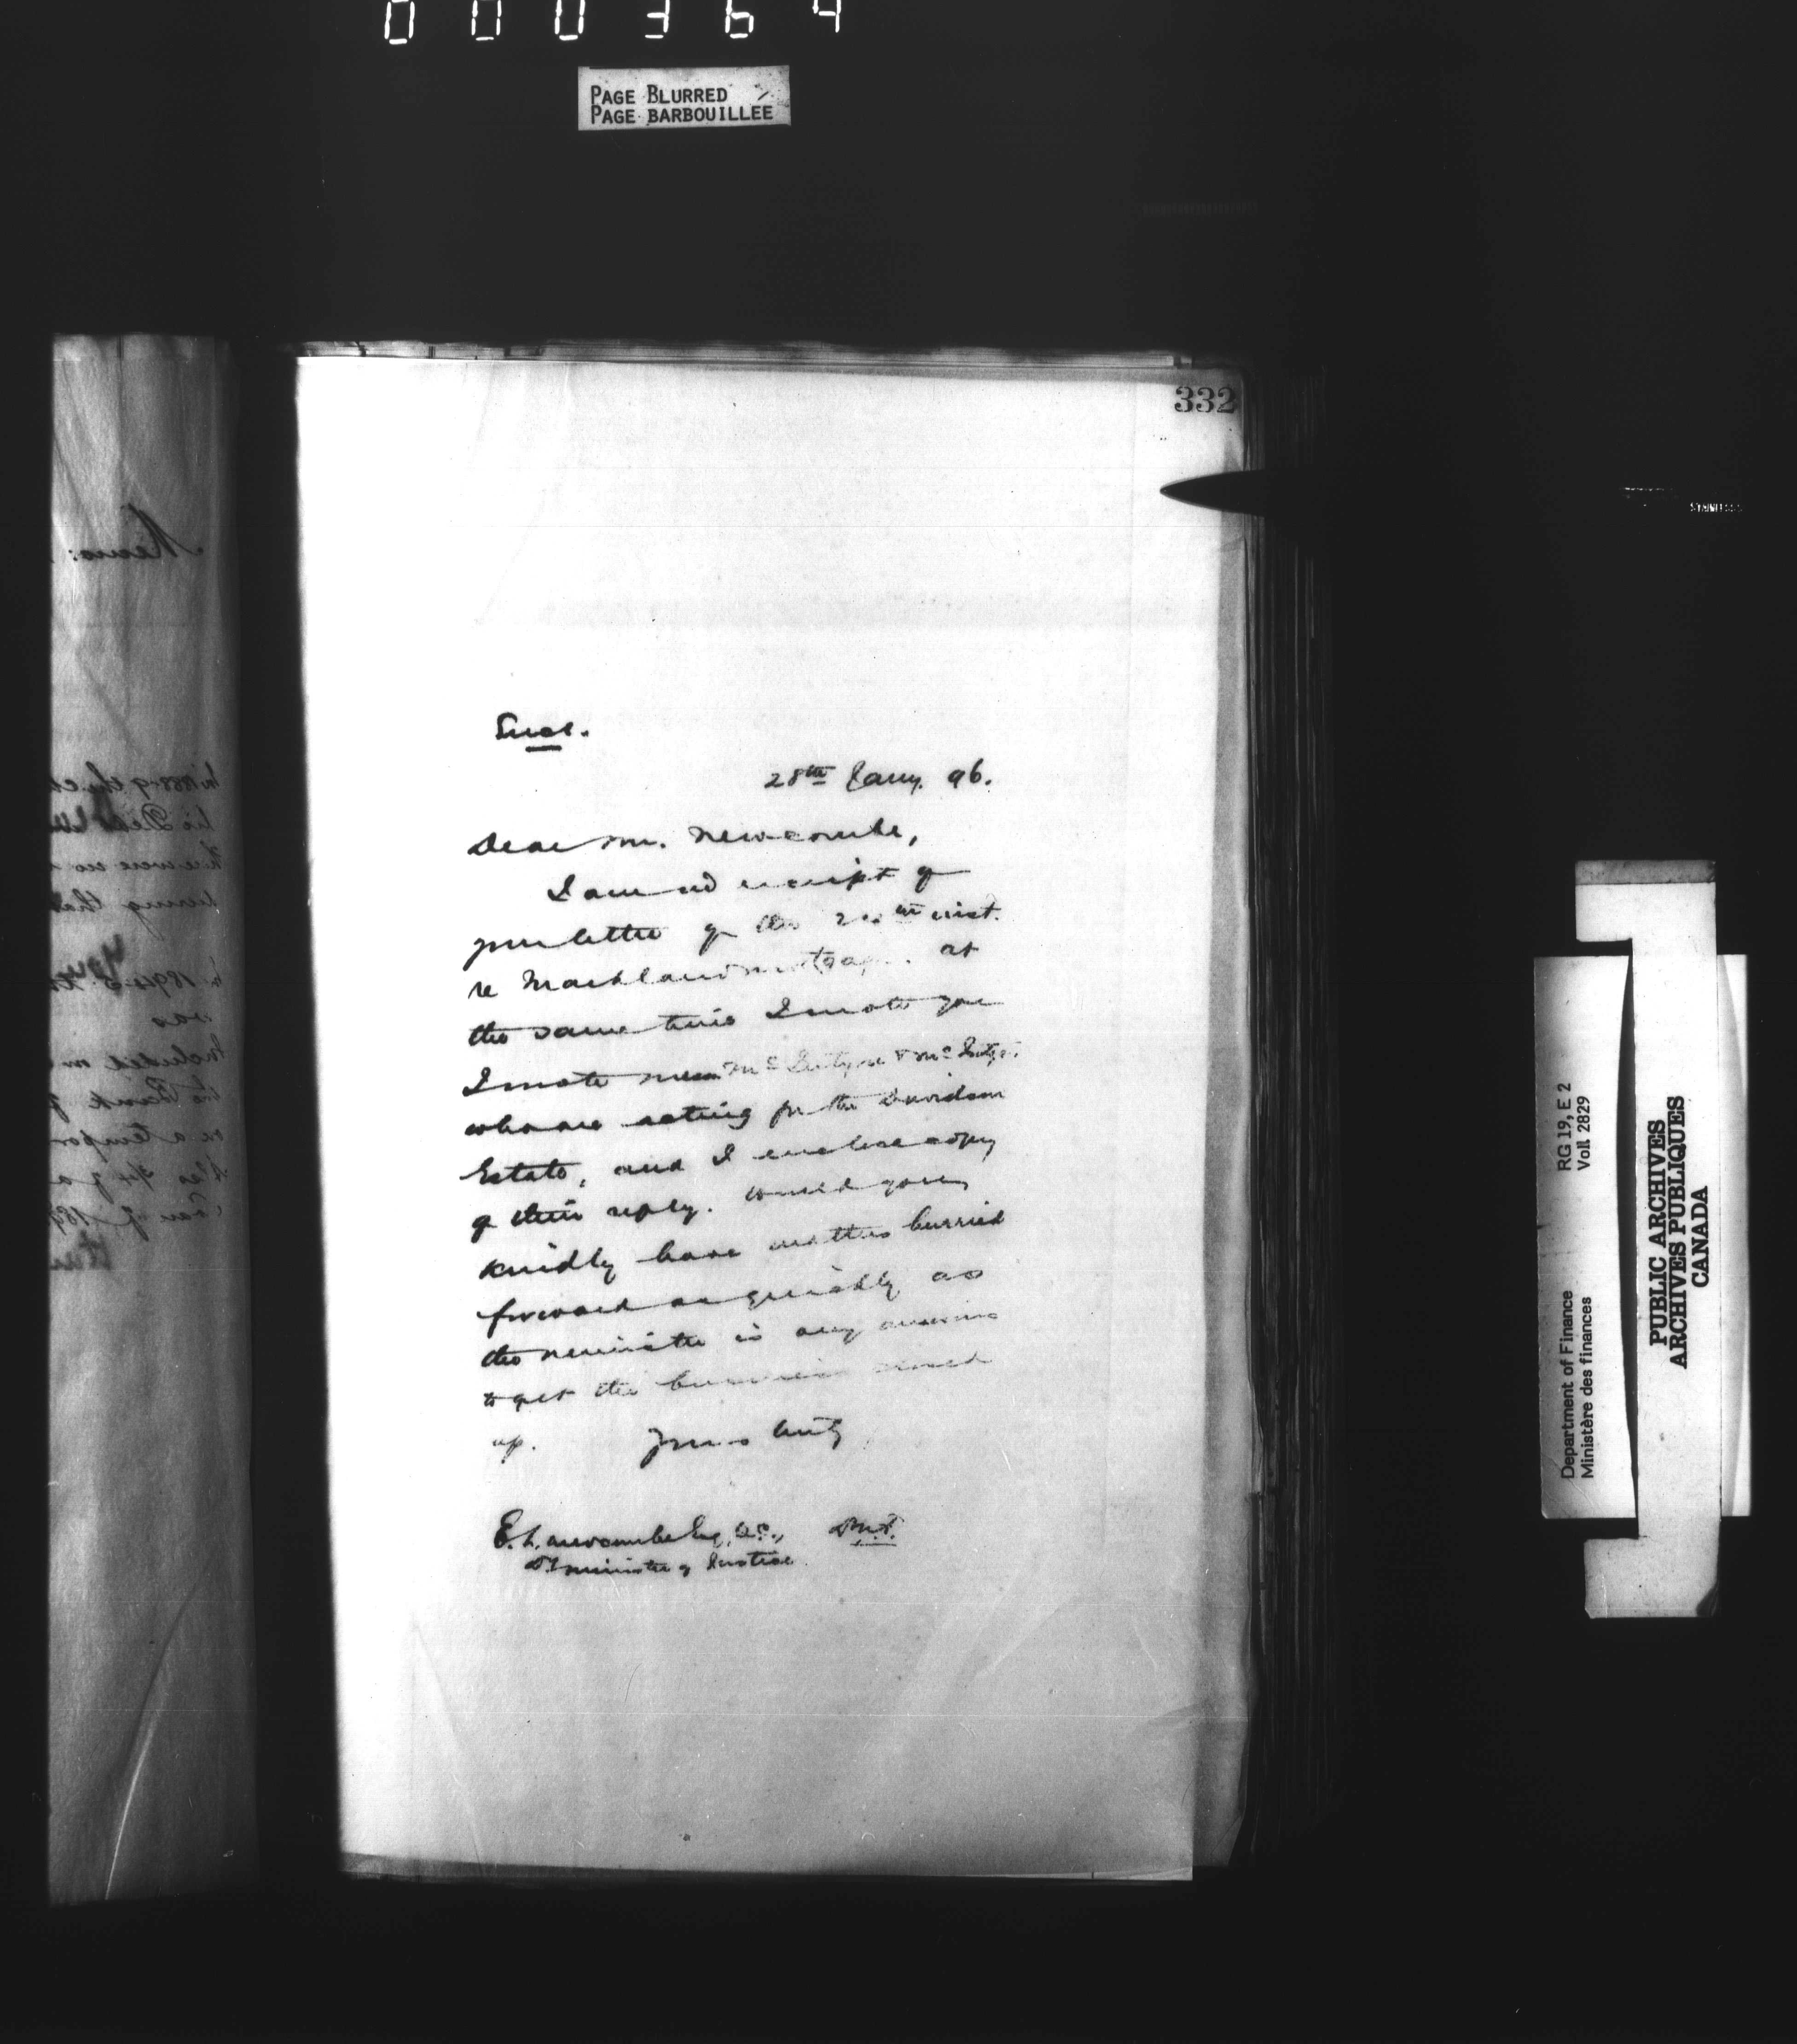 000364
PAGE BLURRED
PAGE BARBOUILLEE
332
Encl.
28th Jany. 96.
Dear Mr. Newcombe,
I am in receipt of
your letter of the inst.
re Markland mortgage. at
the same time I wrote you
I wrote Messrs McIntyre & McIntyre
who are acting for the Davidson
Estate, and I enclose copy
of their reply. Would you
kindly have matters hurried
forward as quickly as
the minister is very anxious
to get the business closed
up. Yours truly
E. L. Newcombe Esq, Q.C., D.M.F.
D. Minister of Justice
Memo:
RG 19, E 2
Vol. 2829
Department of Finance
Ministère des finances
PUBLIC ARCHIVES
ARCHIVES PUBLIQUES
CANADA